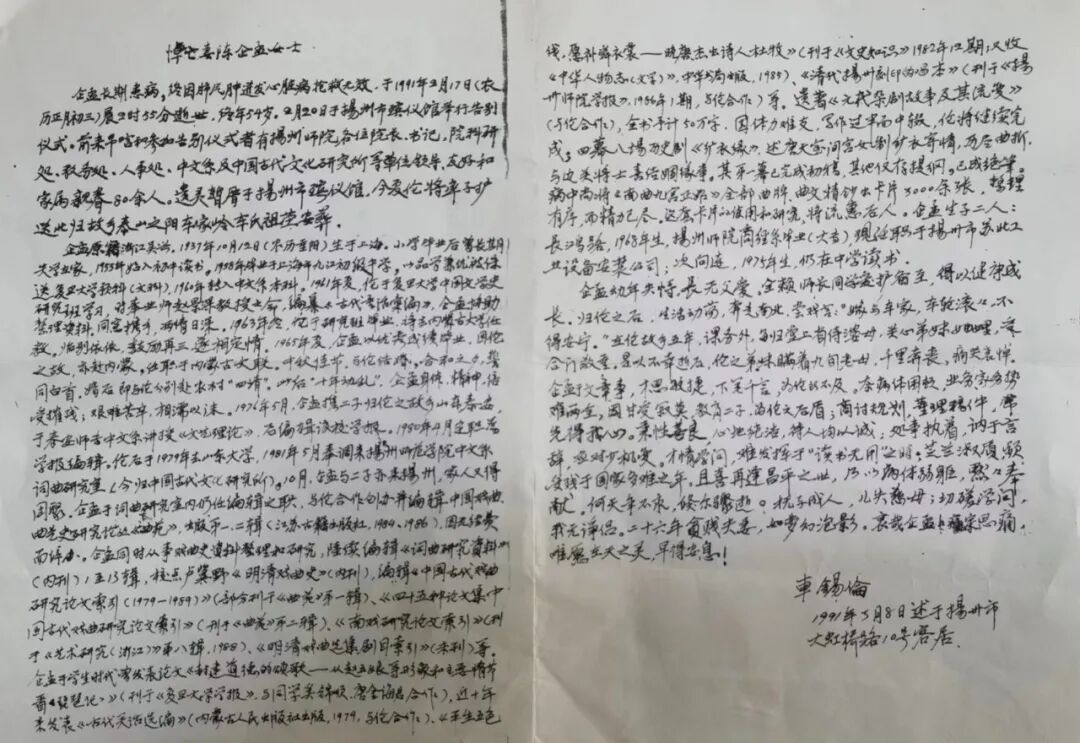 悼亡妻陈企孟女士
企孟长期患病，终因肺炎肺进发心脏病抢救无效，于1991年2月17日（农
历正月初三）晨2时35分逝世，终年54岁。2月20日于扬州市殡仪馆举行告别
仪式。前来吊唁和参加告别仪式者有扬州师院各位院长、书记，院科研
处、教务处、人事处、中文系及中国古代文化研究所等单位领导、友好和
家属亲眷80余人。遗灵暂厝于扬州市殡仪馆，今爰伦将率子护
送此归故乡泰山之阳车家岭车氏祖茔安葬。
企孟原籍浙江吴兴，1937年10月12日（农历重阳）生于上海。小学毕业后曾长期
失学在家，1955年始入初中读书。1958年毕业于上海市九江初级中学，以品学兼优被保
送复旦大学预科（文科），1960年转入中文系本科。1961年夏，伦于复旦大学中国文学史
研究班学习，对奉业师赵景深教授之命，编纂《古代青治案编》，企孟协助
整理资料，同窗携手，两情日深。1963年冬，伦于研究班毕业，将去内蒙古大学任
教。临别依依，鼓励再三，遂相定情。1965年夏，企孟以优秀成绩毕业，因伦
之故，亦赴内蒙，任职于内蒙古大联。中秋佳节，与伦结缡。合和之夕，誓
同白首。婚后即与伦分别赴农村“四清”，此后“十年动乱”，企孟身体、精神，倍
受摧残；艰难苦辛，相濡以沫。1976年5月，企孟携二子归伦之故乡山东泰安，
于泰安师专中文系讲授《文艺理论》，后编辑该校学报。1980年4月迁职为
学报编辑。伦后于1979年去山东大学，1981年5月奉调来扬州师范学院中文系
词曲研究室（今归中国古代文化研究所）。10月，企孟与二子亦来扬州，家人又得
团聚。企孟于词曲研究室内仍任编辑之职，与伦合作创办并编辑中国戏曲
曲艺史研究论丛《曲苑》，出版第一、二辑（江苏古籍出版社，1984、1986），因无经费
而停办。企孟同时从事戏曲史资料整理和研究，陆续编辑《词曲研究资料》
（内刊）1至13辑，校点卢冀野《明清戏曲史》（内刊），编辑《中国古代戏曲
研究论文索引（1979—1989）》（部分刊于《曲苑》第一辑）、《四十五种论文集中
国古代戏曲研究论文索引》（刊于《曲苑》第二辑）、《南戏研究论文索引》（刊
于《艺术研究（浙江）》第八辑，1988）、《明清戏曲选集剧目索引》（未刊）等。
企孟于学生时代曾发表论文《封建道德的颂歌——从赵五娘等形象和主要情节
看〈琵琶记〉》（刊于《复旦大学学报》，与同学吴锦顺、唐金海合作），近十年
来发表《古代笑话选编》（内蒙古人民出版社出版，1979，与伦合作）、《平生五色
线，愿补舜衣裳——晚唐杰出诗人杜牧》（刊于《文史知识》1982年12期；又收
《中华人物志（文学）》，中华书局出版，1985）、《清代扬州刻印的唱本》（刊于《扬
州师院学报》，1986年1期，与伦合作）等。遗著《元代杂剧故事及其流变》
（与伦合作），全书予计50万字，因体力难支，写作过半而中辍，伦将继续完
成；四幕八场历史剧《纩衣缘》，述唐天宝间宫女制纩衣寄情，历尽曲折，
与边关将士喜结姻缘事。其第一幕已完成初稿，其他仅存提纲，已成绝笔。
病中尚将《南曲九宫正始》全部曲牌、曲文摘钞出卡片3000余张，整理
有序，而精力已尽，这套卡片的使用和研究，将流惠后人。企孟生子二人：
长江路，1968年生，扬州师院商经系毕业（大专），现任职于扬州市苏北工
业设备安装公司；次问连，1975年生，仍在中学读书。
企孟幼年失恃，长无父爱，全赖师长同学爱护备至，得以健康成
长。归伦之后，生活动荡，奔走南北，尝戏言：“嫁与车家，车轮滚滚”，不
得安宁。“在伦故乡五年，课务外，每归堂上省侍婆母，关心弟妹如血理，受
合门敬爱。是以不幸逝后，伦之弟妹瞒着九旬老母，千里奔丧，痛失哀悼。
企孟于文章事，才思敏捷，下笔千言，为伦所不及。奈病体困顿，业务家务势
难两全，因甘受寂寞，教育二子，为伦之后盾；商讨规划，整理稿件，常
先得我心。秉性善良，心地纯洁，待人均以诚；处事执着，讷于言
辞，应对少机变。才情学问，难发挥于“读书无用”之时；芝兰淑质，颠
簸残于国家多难之年。且喜再逢昌平之业，乃以病体弱躯，默々奉
献。何天年不永，倏尔骤逝。犹子成人，儿失慈母；切磋学问，
我无诤侣。二十六年贫贱夫妻，如梦幻泡影。哀我企孟！痛哉思痛，
唯愿在天之灵，早得安息！
车锡伦
1991年3月8日述于扬州市
大虹桥路10号客居。